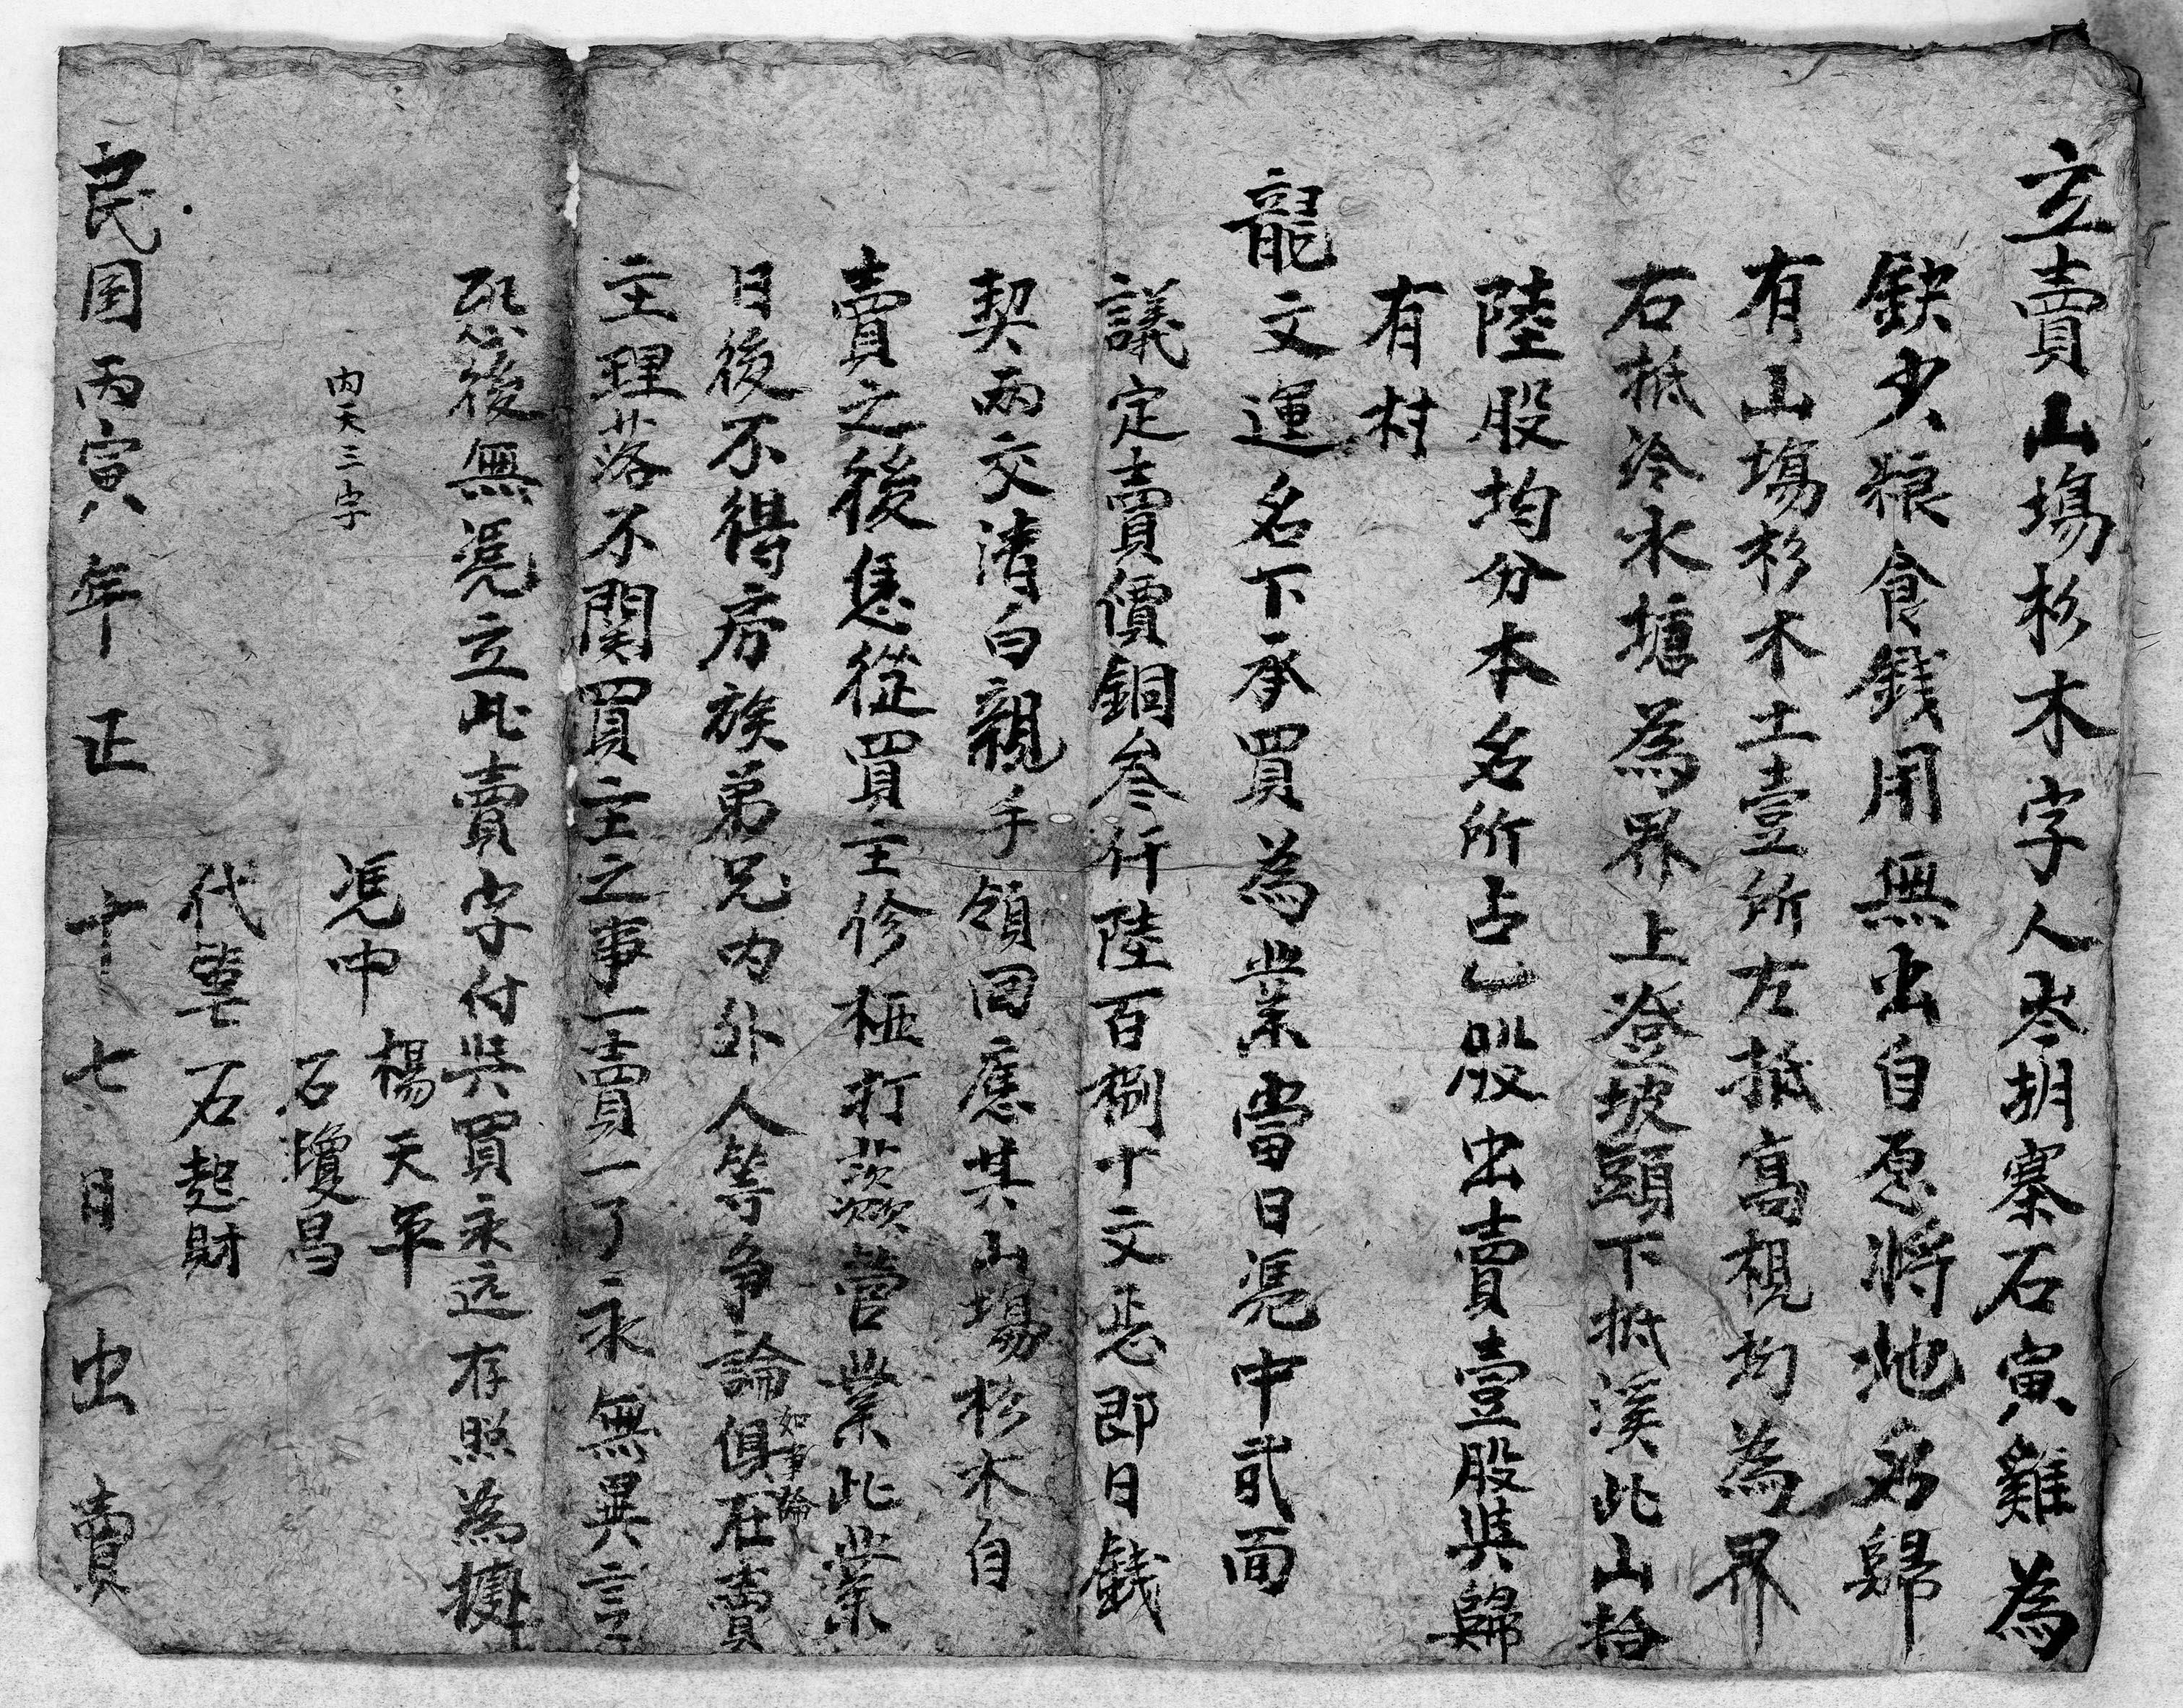 立賣山塲杉木字人岑胡寨石寅雞為
缺少粮食錢用無出自愿將地名歸
有山塲杉木土壹所左抵高梘均為界
右抵冷水塘為界上登坡頭下抵溪此山拾
陸股均分本名所占乙股出賣壹股與歸
有村
龍文運名下承買為業當日凴中弍面
議定賣價銅叁仟陸百捌十文正即日錢
契兩交清白親手領回應其山塲杉木自
賣之後恁從買主修極打蓊管業此業
日後不得房族弟兄内外人等争論俱在賣
如事論
主理落不関買主之事一賣一了永無異言
恐後無凴立此賣字付與買永远存照為據
内天三字
凴中 楊天平
石瓊昌
代筆石起財
民国丙寅年正十七月出賣